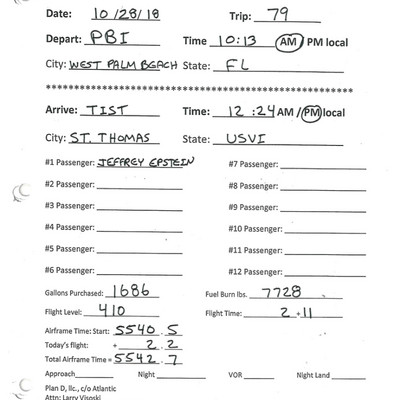 Date: 10/28/18 Trip: 79
Depart: PBI Time 10:13 AM / PM local
City: WEST PALM BEACH State: FL
**************************************************
Arrive: TIST Time: 12:24 AM / PM local
City: ST. THOMAS State: USVI
#1 Passenger: JEFFREY EPSTEIN #7 Passenger:
#2 Passenger: #8 Passenger:
#3 Passenger: #9 Passenger:
#4 Passenger: #10 Passenger:
#5 Passenger: #11 Passenger:
#6 Passenger: #12 Passenger:
Gallons Purchased: 1686 Fuel Burn lbs. 7728
Flight Level: 410 Flight Time: 2+11
Airframe Time: Start: 5540.5
Today's flight: + 2.2
Total Airframe Time = 5542.7
Approach Night VOR Night Land
Plan D, llc., c/o Atlantic
Attn: Larry Visoski